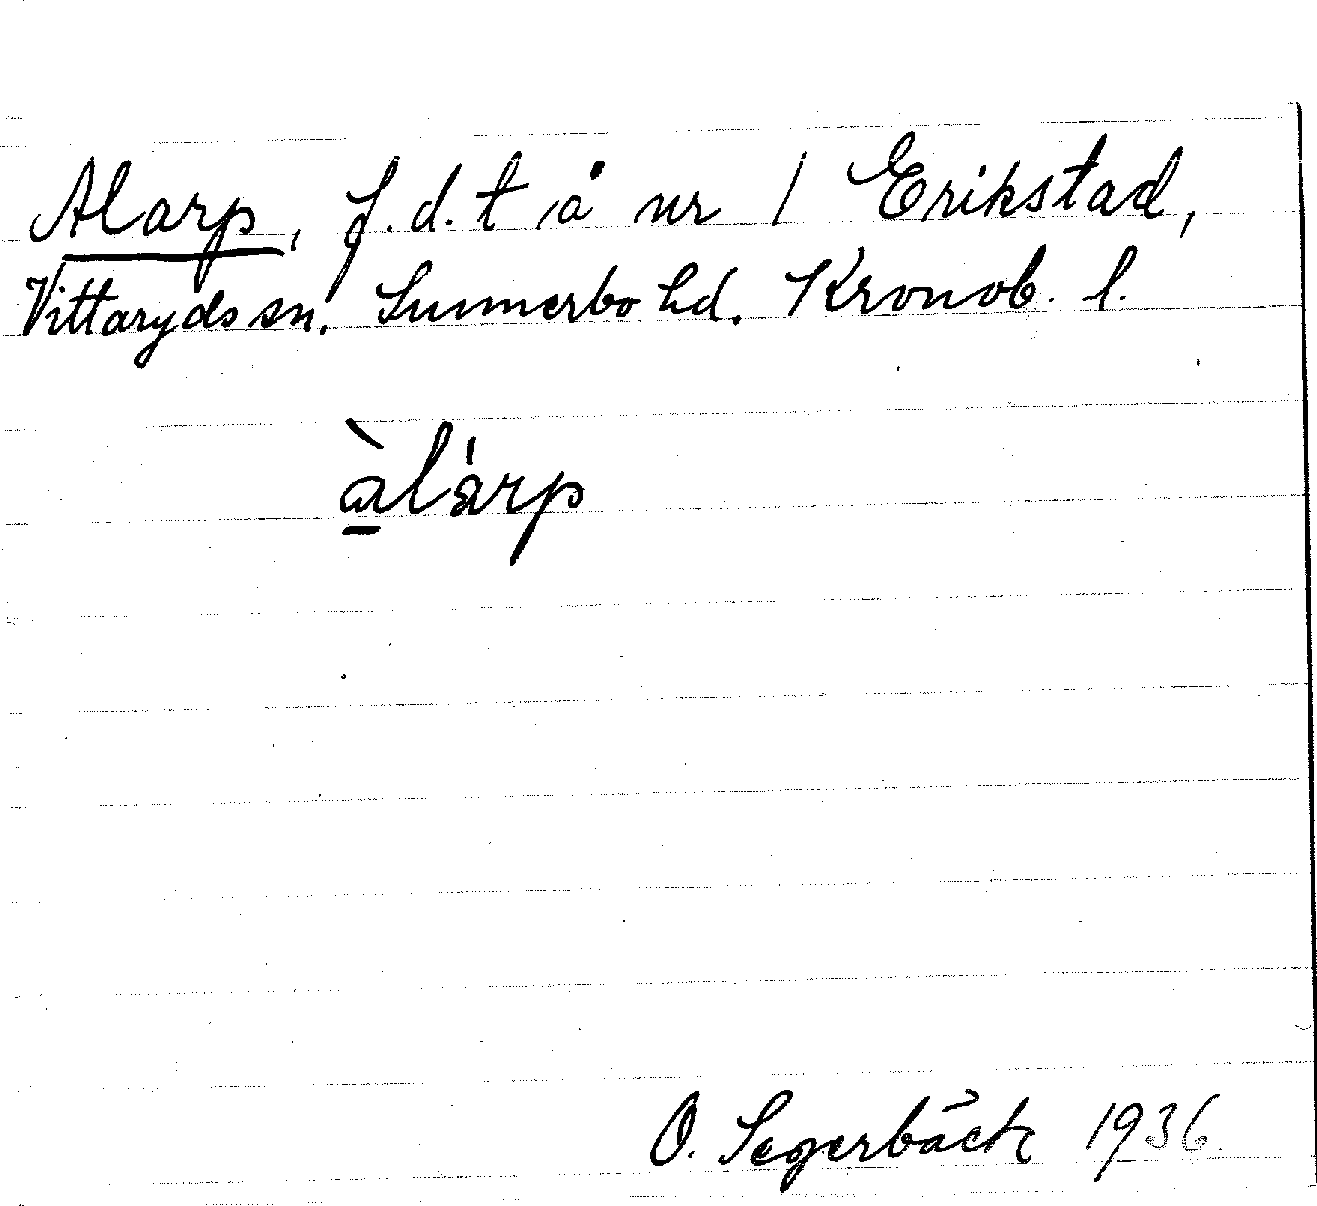 Alarp, f.d.t å nr 1 Erikstad,
Vittaryds sn. Sunnerbo hd. Kronob. l.
àlárp
O. Segerbäck 1936.